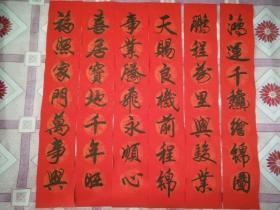 鴻運千籌繪錦圖
鵬程萬里興駿業
天賜良機前程錦
事業騰飛永順心
喜居寶地千年旺
福照家門萬事興